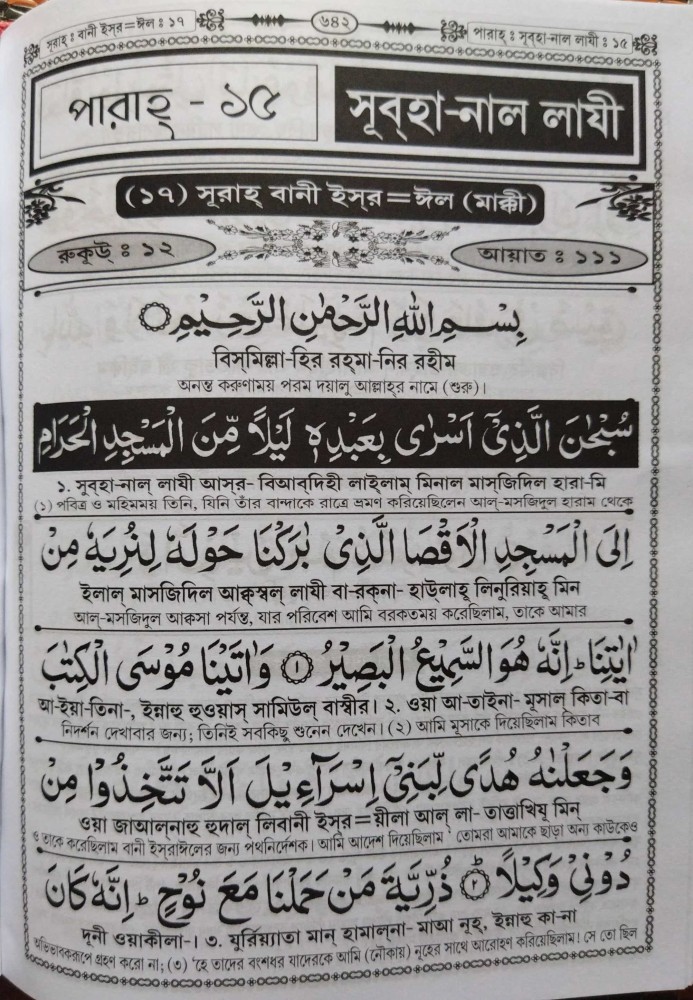 সূরাহ্ ঃ বানী ইস্‌র=ঈল ঃ ১৭
৬৪২
পারাহ্ ঃ সূব্‌হা-নাল লাযী ঃ ১৫
পারাহ্ - ১৫
সূব্‌হা-নাল লাযী
(১৭) সূরাহ্ বানী ইস্‌র=ঈল (মাক্কী)
রুকূউ্ ঃ ১২
আয়াত ঃ ১১১
بِسْمِ اللهِ الرَّحْمٰنِ الرَّحِيْمِ
বিস্‌মিল্লা-হির রহ্‌মা-নির রহীম
অনন্ত করুণাময় পরম দয়ালু আল্লাহ্‌র নামে (শুরু)।
سُبْحٰنَ الَّذِيْٓ اَسْرٰى بِعَبْدِهٖ لَيْلًا مِّنَ الْمَسْجِدِ الْحَرَامِ
১. সুব্‌হা-নাল্ লাযী আস্‌র- বিআব্‌দিহী লাইলাম্ মিনাল মাস্‌জিদিল হারা-মি
(১) পবিত্র ও মহিমময় তিনি, যিনি তাঁর বান্দাকে রাত্রে ভ্রমণ করিয়েছিলেন আল্-মসজিদুল হারাম থেকে
اِلَى الْمَسْجِدِ الْاَقْصَا الَّذِيْ بٰرَكْنَا حَوْلَهٗ لِنُرِيَهٗ مِنْ
ইলাল্ মাসজিদিল আক্বস্বল্ লাযী বা-রক্‌না- হাউ্‌লাহূ লিনুরিয়াহূ মিন
আল্-মসজিদুল আক্বসা পর্যন্ত, যার পরিবেশ আমি বরকতময় করেছিলাম, তাকে আমার
اٰيٰتِنَا ؕ اِنَّهٗ هُوَ السَّمِيْعُ الْبَصِيْرُ ۝١ وَاٰتَيْنَا مُوْسَى الْكِتٰبَ
আ-ইয়া-তিনা-, ইন্নাহূ হুওয়াস্ সামিউল্ বাস্বীর। ২. ওয়া আ-তাইনা- মূসাল্ কিতা-বা
নিদর্শন দেখাবার জন্য; তিনিই সবকিছু শুনেন দেখেন। (২) আমি মূসাকে দিয়েছিলাম কিতাব
وَجَعَلْنٰهُ هُدًى لِّبَنِيْٓ اِسْرَآءِيْلَ اَلَّا تَتَّخِذُوْا مِنْ
ওয়া জাআল্‌নাহু হুদাল্ লিবানী ইস্‌র=য়ীলা আল্ লা- তাত্তাখিযূ মিন্
ও তাকে করেছিলাম বানী ইসরাঈলের জন্য পথনির্দেশক। আমি আদেশ দিয়েছিলাম 'তোমরা আমাকে ছাড়া অন্য কাউকেও
دُوْنِيْ وَكِيْلًا ۝٢ؕ ذُرِّيَّةَ مَنْ حَمَلْنَا مَعَ نُوْحٍ ؕ اِنَّهٗ كَانَ
দূনী ওয়াকীলা-। ৩. যুর্‌রিয়্যাতা মান্ হামাল্‌না- মাআ নূহ্, ইন্নাহূ কা-না
অভিভাবকরূপে গ্রহণ করো না; (৩) 'হে তাদের বংশধর যাদেরকে আমি (নৌকায়) নূহের সাথে আরোহণ করিয়েছিলাম! সে তো ছিল